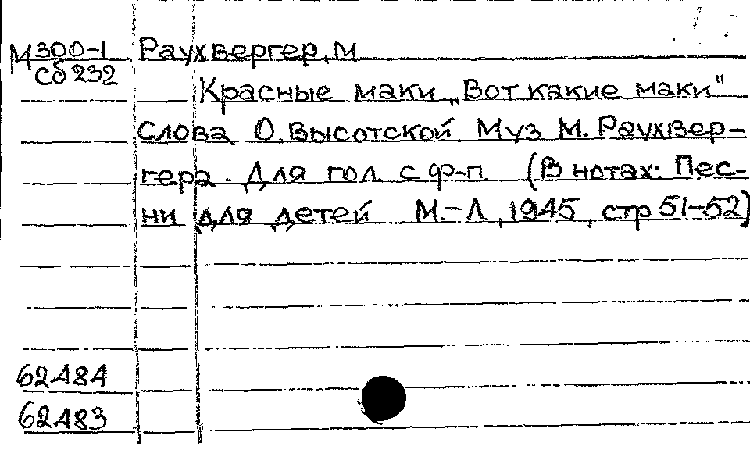 М300-1 Раухвергер, М
Сб 232
Красные маки „Вот какие маки"
Слова О. Высотской Муз М. Раухвер-
гера. Для гол. с ф-п. (В нотах: Пес-
ни для детей М.-Л., 1945, стр 51-52)
62484
62483